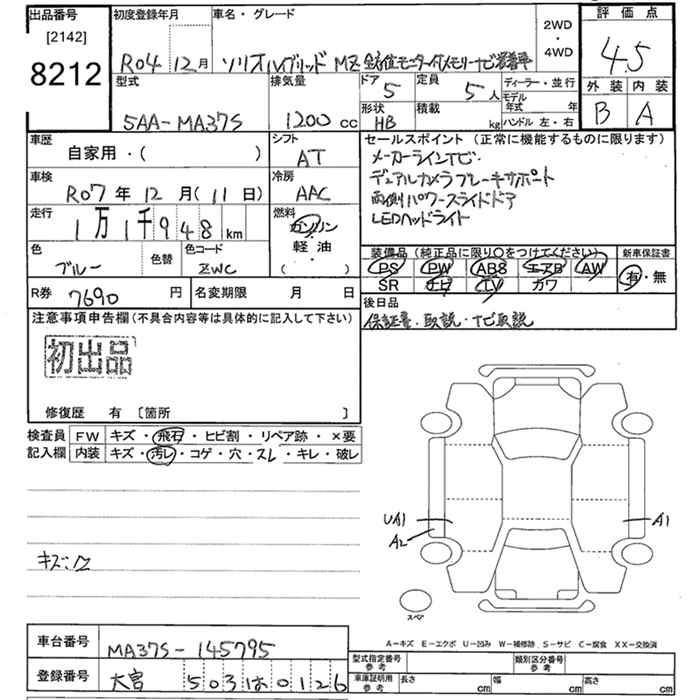 出品番号
[2142]
8212
初度登録年月
R04 12月
車名・グレード
ソリオハイブリッド MZ 全方位モニター付メモリーナビ装着車
2WD
・
4WD
評価点
4.5
外装 内装
B A
型式
5AA-MA37S
排気量
1200 cc
ドア
5
定員
5人
形状
HB
積載
kg
ディーラー・並行
モデル年式 年
ハンドル 左・右
車歴
自家用・( )
シフト
AT
車検
R07年12月(11日)
冷房
AAC
走行
1万1千948km
燃料
ガソリン
軽油
( )
色
ブルー
色替
色コード
ZWC
R券 7690円
名変期限 月 日
セールスポイント (正常に機能するものに限ります)
メーカーラインナビ
デュアルカメラブレーキサポート
両側パワースライドドア
LEDヘッドライト
装備品 (純正品に限り○をつけてください)
PS PW ABS エアB AW
SR ナビ TV カワ
新車保証書
有・無
後日品
保証書・取説・ナビ取説
注意事項申告欄(不具合内容等は具体的に記入して下さい)
初出品
修復歴 有 [箇所 ]
検査員 FW キズ・飛石・ヒビ割・リペア跡・×要
記入欄 内装 キズ・汚レ・コゲ・穴・スレ・キレ・破レ
UA1
A2
A1
スペア
A-キズ E-エクボ U-凹み W-補修跡 S-サビ C-腐食 XX-交換済
車台番号 MA37S-145795
登録番号 大宮 503 は 0126
型式指定番号 参考
類別区分番号 参考
車庫証明用 参考
長さ cm 幅 cm 高さ cm